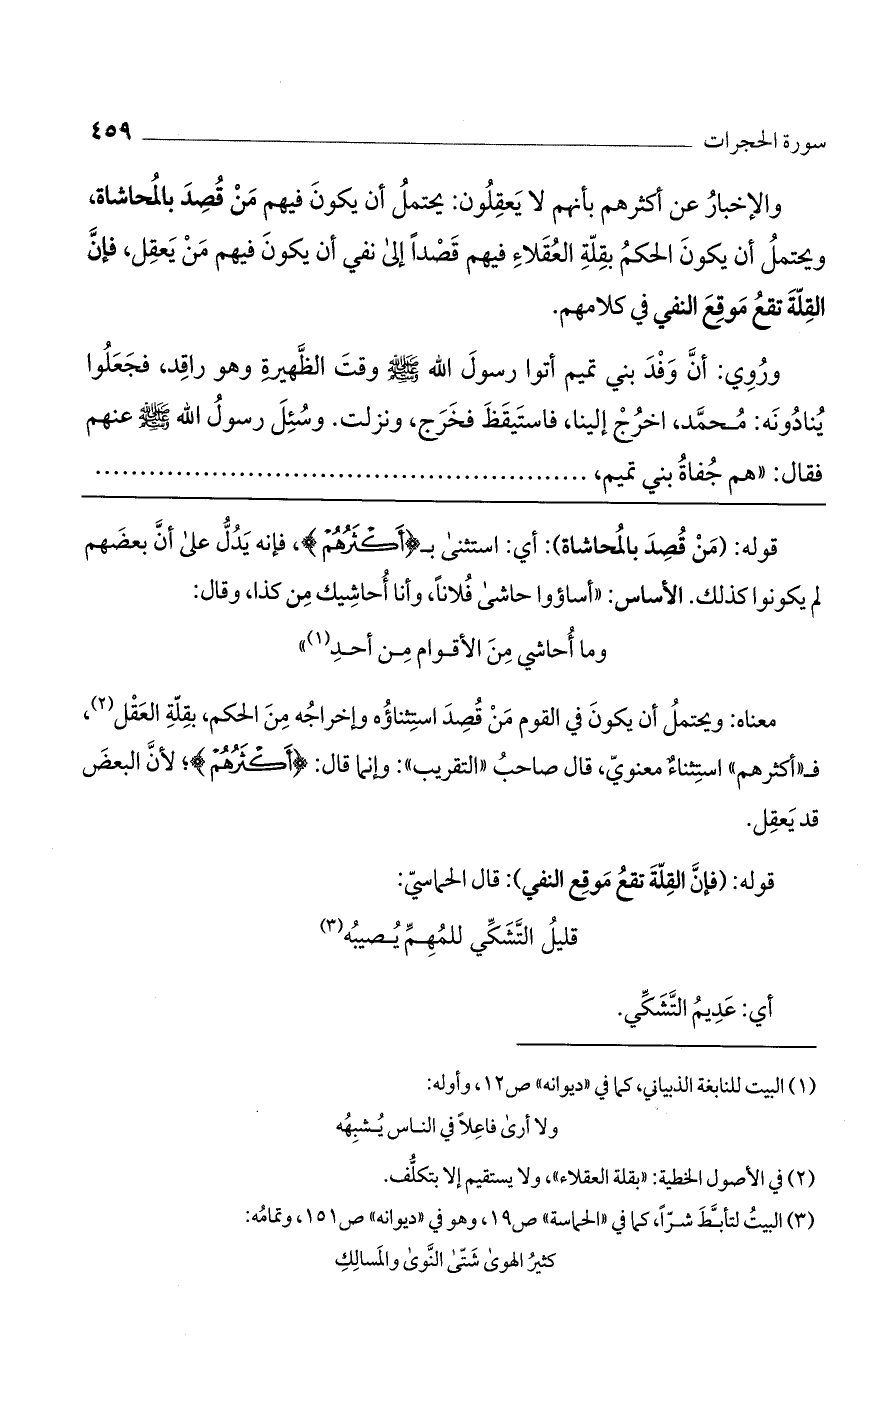 سورة الحجرات ٤٥٩
والإخبارُ عن أكثرهم بأنهم لا يَعقِلُون: يحتملُ أن يكونَ فيهم مَنْ قُصِدَ بالمُحاشاة،
ويحتملُ أن يكونَ الحكمُ بقِلّةِ العُقَلاءِ فيهم قَصْداً إلىٰ نفي أن يكونَ فيهم مَنْ يَعقِل، فإنَّ
القِلّةَ تقعُ مَوقِعَ النفي في كلامهم.
ورُوِي: أنَّ وَفْدَ بني تميم أتوا رسولَ الله ﷺ وقتَ الظَّهيرةِ وهو راقِد، فجَعَلُوا
يُنادُونَه: مُـحمَّد، اخرُجْ إلينا، فاستَيقَظَ فخَرَج، ونزلت. وسُئِلَ رسولُ الله ﷺ عنهم
فقال: «هم جُفاةُ بني تميم، ......................................................
قوله: (مَنْ قُصِدَ بالمُحاشاة): أي: استثنىٰ بـ﴿أَكْثَرُهُمْ﴾، فإنه يَدُلُّ علىٰ أنَّ بعضَهم
لم يكونوا كذلك. الأساس: «أساؤوا حاشىٰ فُلاناً، وأنا أُحاشِيك مِن كذا، وقال:
وما أُحاشي مِنَ الأقـوام مِـن أحـدِ(١)»
معناه: ويحتملُ أن يكونَ في القوم مَنْ قُصِدَ استِثناؤُه وإخراجُه مِنَ الحكم، بقِلّةِ العَقْل(٢)،
فـ«أكثرهم» استِثناءٌ معنويّ، قال صاحبُ «التقريب»: وإنما قال: ﴿أَكْثَرُهُمْ﴾؛ لأنَّ البعضَ
قد يَعقِل.
قوله: (فإنَّ القِلّةَ تقعُ مَوقِع النفي): قال الحماسيّ:
قليلُ التَّشَكِّي للمُهِمِّ يُـصيبُه(٣)
أي: عَدِيمُ التَّشَكِّي.
(١) البيت للنابغة الذبياني، كما في «ديوانه» ص١٢، وأوله:
ولا أرىٰ فاعِلاً في النـاس يُـشبِهُه
(٢) في الأصول الخطية: «بقلة العقلاء»، ولا يستقيم إلا بتكلُّف.
(٣) البيتُ لتأبَّطَ شـرّاً، كما في «الحماسة» ص١٩، وهو في «ديوانه» ص١٥١، وتمامُه:
كثيرُ الهوىٰ شَتّىٰ النَّوىٰ والمَسالِكِ